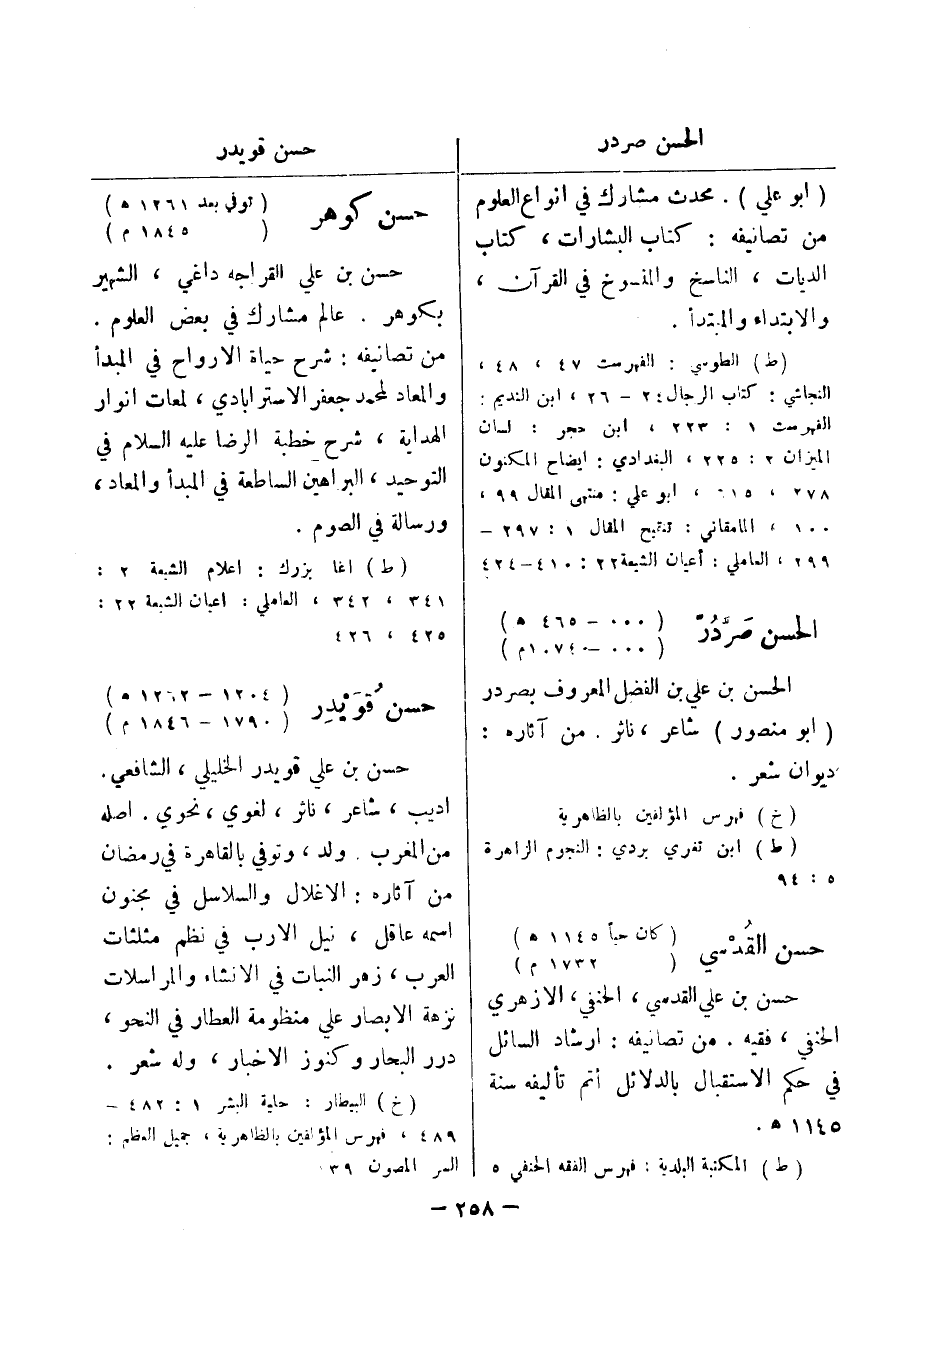 الحسن صردر
( ابو علي ) . محدث مشارك في انواع العلوم
من تصانيفه : كتاب البشارات ، كتاب
الديات ، الناسخ والمنسوخ في القرآن ،
والابتداء والمبتدأ .
( ط ) الطوسي : الفهرست ٤٧ ، ٤٨ ،
النجاشي : كتاب الرجال ٢٤ – ٢٦ ، ابن النديم :
الفهرست ١ : ٢٢٣ ، ابن حجر : لسان
الميزان ٢ : ٢٢٥ ، البغدادي : ايضاح المكنون
٢٧٨ ، ، ابو علي : منتهى المقال ٩٩ ،
١٠٠ ، المامقاني : تنقيح المقال ١ : ٢٩٧ –
٢٩٩ ، العاملي : أعيان الشيعة ٢٢ : ٤١٠–٤٢٤
الحسن صَرَّدُرّ ( ٠٠٠ – ٤٦٥ ه )
( ٠٠٠ – ١٠٧٤ م )
الحسن بن علي بن الفضل المعروف بصردر
( ابو منصور ) شاعر ، ناثر . من آثاره :
ديوان شعر .
( خ ) فهرس المؤلفين بالظاهرية
( ط ) ابن تغري بردي : النجوم الزاهرة
٥ : ٩٤
حسن القُدْسي ( كان حياً ١١٤٥ ه )
( ١٧٣٢ م )
حسن بن علي القدسي ، الحنفي ، الازهري
الحنفي ، فقيه . من تصانيفه : ارشاد السائل
في حكم الاستقبال بالدلائل أتم تأليفه سنة
١١٤٥ ه .
( ط ) المكتبة البلدية : فهرس الفقه الحنفي ٥
حسن قويدر
حسن كوهر ( توفي بعد ١٢٦١ ه )
( ١٨٤٥ م )
حسن بن علي القراجه داغي ، الشهير
بكوهر . عالم مشارك في بعض العلوم .
من تصانيفه : شرح حياة الارواح في المبدأ
والمعاد لمحمد جعفر الاسترابادي ، لمعات انوار
الهداية ، شرح خطبة الرضا عليه السلام في
التوحيد ، البراهين الساطعة في المبدأ والمعاد ،
ورسالة في الصوم .
( ط ) اغا بزرك : اعلام الشيعة ٢ :
٣٤١ ، ٣٤٢ ، العاملي : اعيان الشيعة ٢٢ :
٤٢٥ ، ٤٢٦
حسن قُوَيْدِر ( ١٢٠٤ – ١٢٦٢ ه )
( ١٧٩٠ – ١٨٤٦ م )
حسن بن علي قويدر الخليلي ، الشافعي .
اديب ، شاعر ، ناثر ، لغوي ، نحوي . اصله
من المغرب . ولد ، وتوفي بالقاهرة في رمضان
من آثاره : الاغلال والسلاسل في مجنون
اسمه عاقل ، نيل الارب في نظم مثلثات
العرب ، زهر النبات في الانشاء والمراسلات
نزهة الابصار علي منظومة العطار في النحو ،
درر البحار وكنوز الاخبار ، وله شعر .
( خ ) البيطار : حلية البشر ١ : ٤٨٢ –
٤٨٩ ، فهرس المؤلفين بالظاهرية ، جميل العظم :
السر المصون ٣٩
– ٢٥٨ –